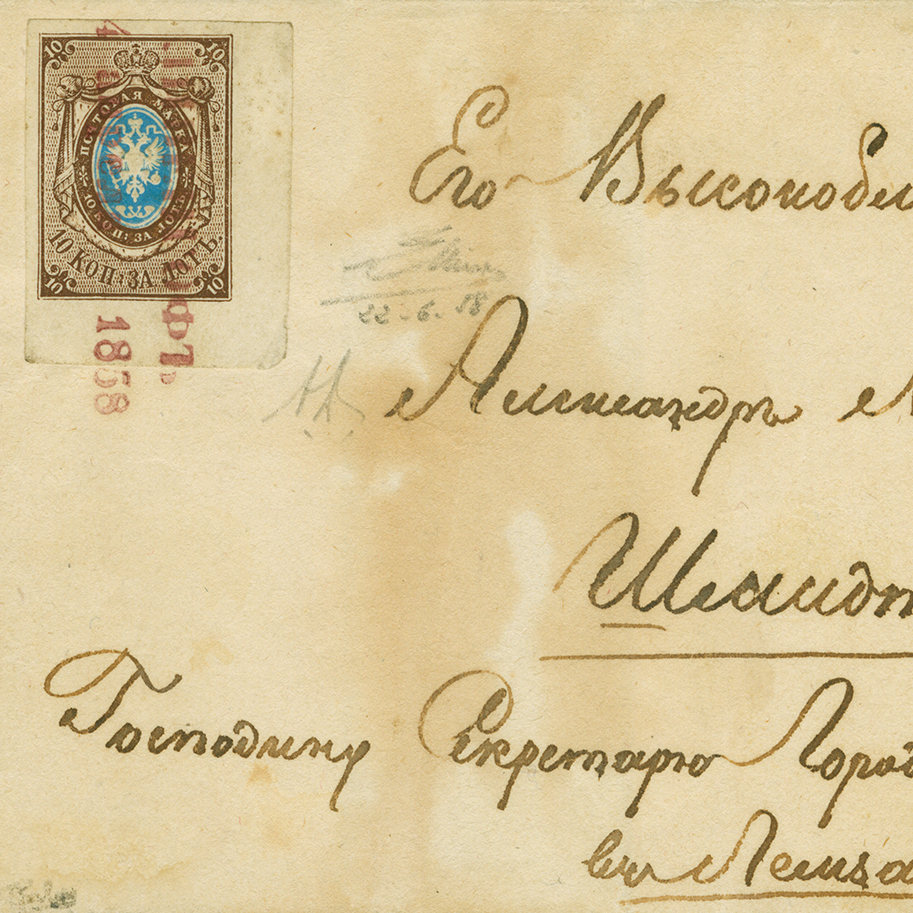 10 10
ПОЧТОВАЯ МАРКА
10 КОП: ЗА ЛОТЪ
10 КОП. ЗА ЛОТЪ.
10 10
1858
Его Высокобл
22-6-58
Александръ
Шмидт
Господину Секретарю Город
въ